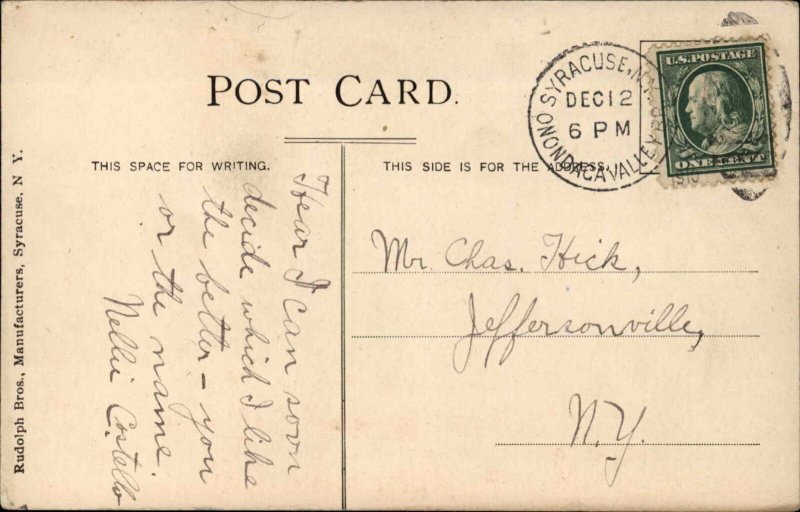 POST CARD.
THIS SPACE FOR WRITING.
THIS SIDE IS FOR THE ADDRESS.
SYRACUSE, N.Y.
ONONDAGA VALLEY
DEC 12
6 PM
1910
U.S. POSTAGE
ONE CENT
Hear I can soon
decide which I like
the better – you
or the name.
Nellie Costello
Mr. Chas. Hick,
Jeffersonville,
N.Y.
Rudolph Bros., Manufacturers, Syracuse, N. Y.